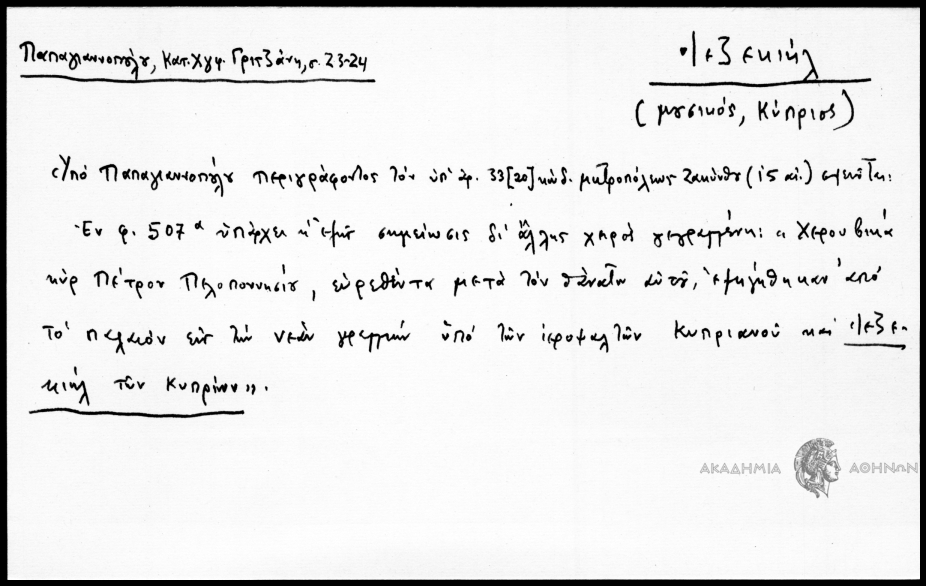 Παπαγιαννοπούλου, Κατ. Χγφ. Γριτζάνη, σ. 23-24
Ἰεζεκιὴλ
(μουσικός, Κύπριος)
Ὑπό Παπαγιαννοπούλου περιγράφοντος τὸν ὑπ' ἀρ. 33[20] κώδ. μητροπόλεως Ζακύνθου (ις αἰ.) σημειοῦται:
Ἐν φ. 507α ὑπάρχει ἡ ἑξῆς σημείωσις δι' ἄλλης χειρὸς γεγραμμένη: « Χερουβικὰ
κὺρ Πέτρου Πελοποννησίου, εὑρεθέντα μετὰ τὸν θάνατον αὐτοῦ, ἐξηγήθηκαν ἀπό
τὸ παλαιόν εἰς τὴν νέαν γραμμὴν ὑπό τῶν ἱεροψαλτῶν Κυπριανοῦ καὶ Ἰεζε-
κιὴλ τῶν Κυπρίων».
ΑΚΑΔΗΜΙΑ ΑΘΗΝΩΝ